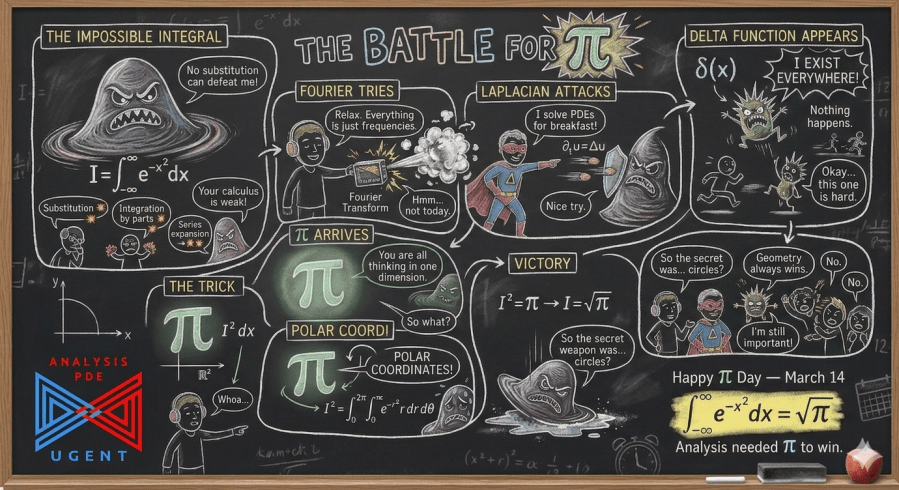 THE BATTLE FOR π
THE IMPOSSIBLE INTEGRAL
No substitution
can defeat me!
I=∫_{-∞}^{∞} e^{-x²}dx
Your calculus
is weak!
Substitution
Integration
by parts
Series
expansion
FOURIER TRIES
Relax. Everything
is just frequencies.
Fourier
Transform
Hmm...
not today.
LAPLACIAN ATTACKS
I solve PDEs
for breakfast!
∂ₜu=Δu
Nice try.
DELTA FUNCTION APPEARS
δ(x)
I EXIST
EVERYWHERE!
Nothing
happens.
Okay...
this one
is hard.
π ARRIVES
π
You are all
thinking in one
dimension.
So what?
THE TRICK
y
x
π
I² dx
ℝ²
Whoa...
POLAR COORDI
π
POLAR
COORDINATES!
VICTORY
I²=π → I=√π
So the secret
weapon was...
circles?
So the secret
was... circles?
Geometry
always wins.
No.
No.
I'm still
important!
ANALYSIS
PDE
UGENT
Happy π Day — March 14
∫_{-∞}^{∞} e^{-x²}dx = √π
Analysis needed π to win.